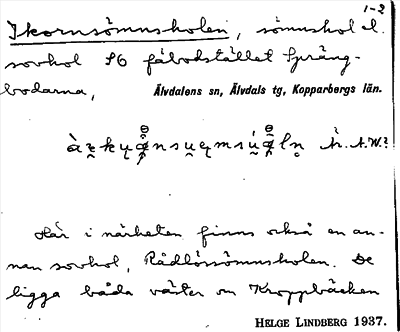 1-2
Ikornsömnsholen, sömnshol el.
sovhol SO fäbodstället Spräng-
bodarna,
Älvdalens sn, Älvdals tg, Kopparbergs län.
Här i närheten finns också en an-
nan sovhol, Rådlössömnsholen. De
ligga båda väster om Kroppbäcken
HELGE LINDBERG 1937.